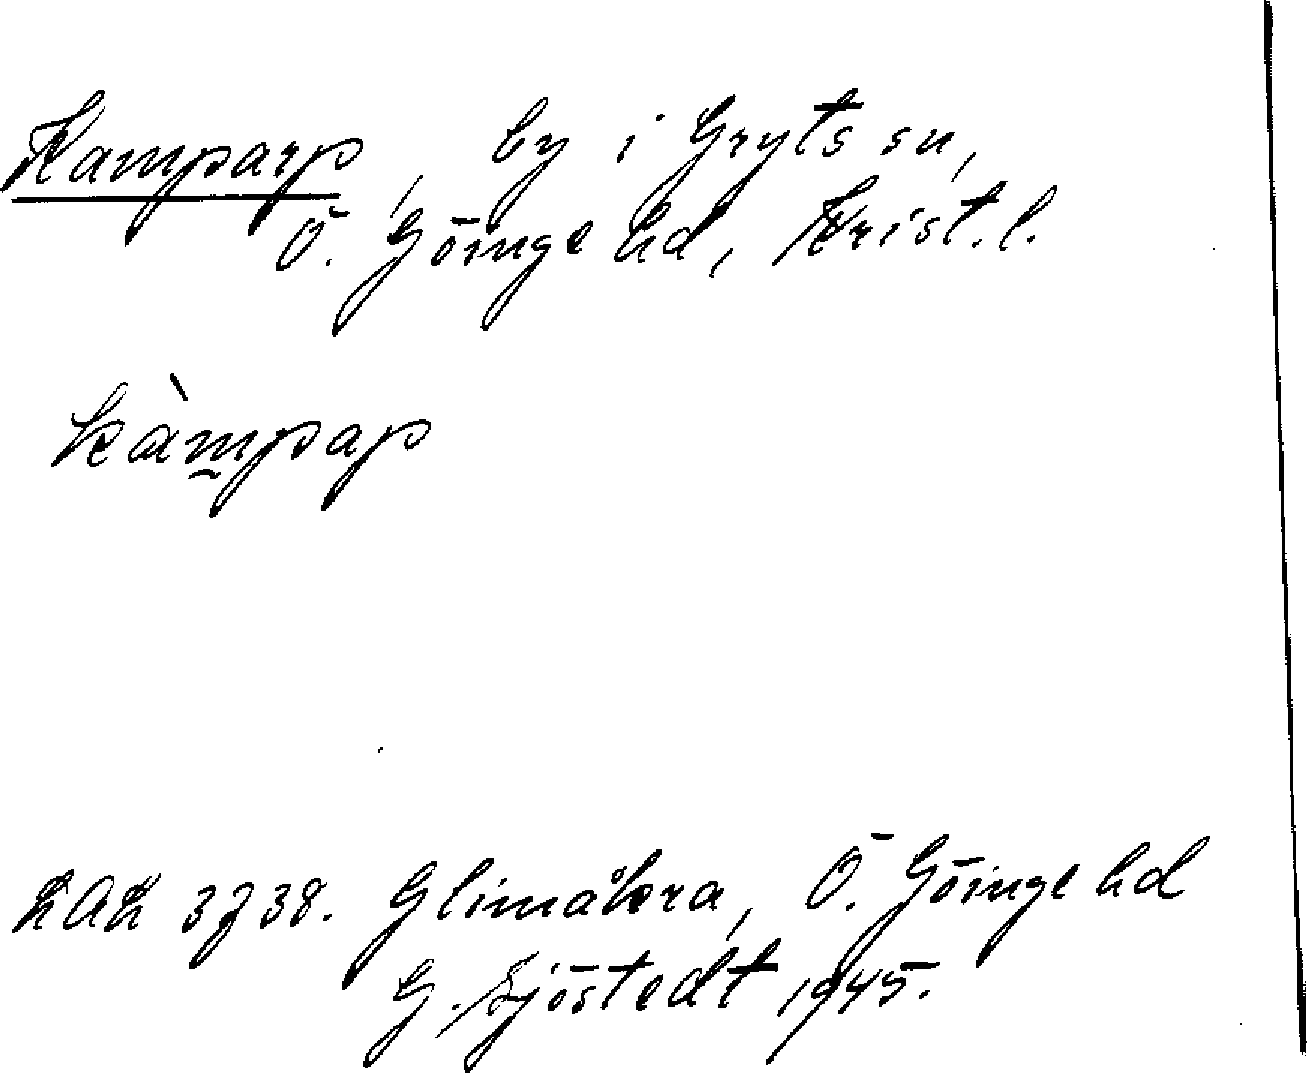 Kamparp, by i Gryts sn,
Ö. Göinge hd, Krist. l.
kàm̰pap
LAL 3738. Glimåkra, Ö. Göinge hd
G. Sjöstedt 1945.